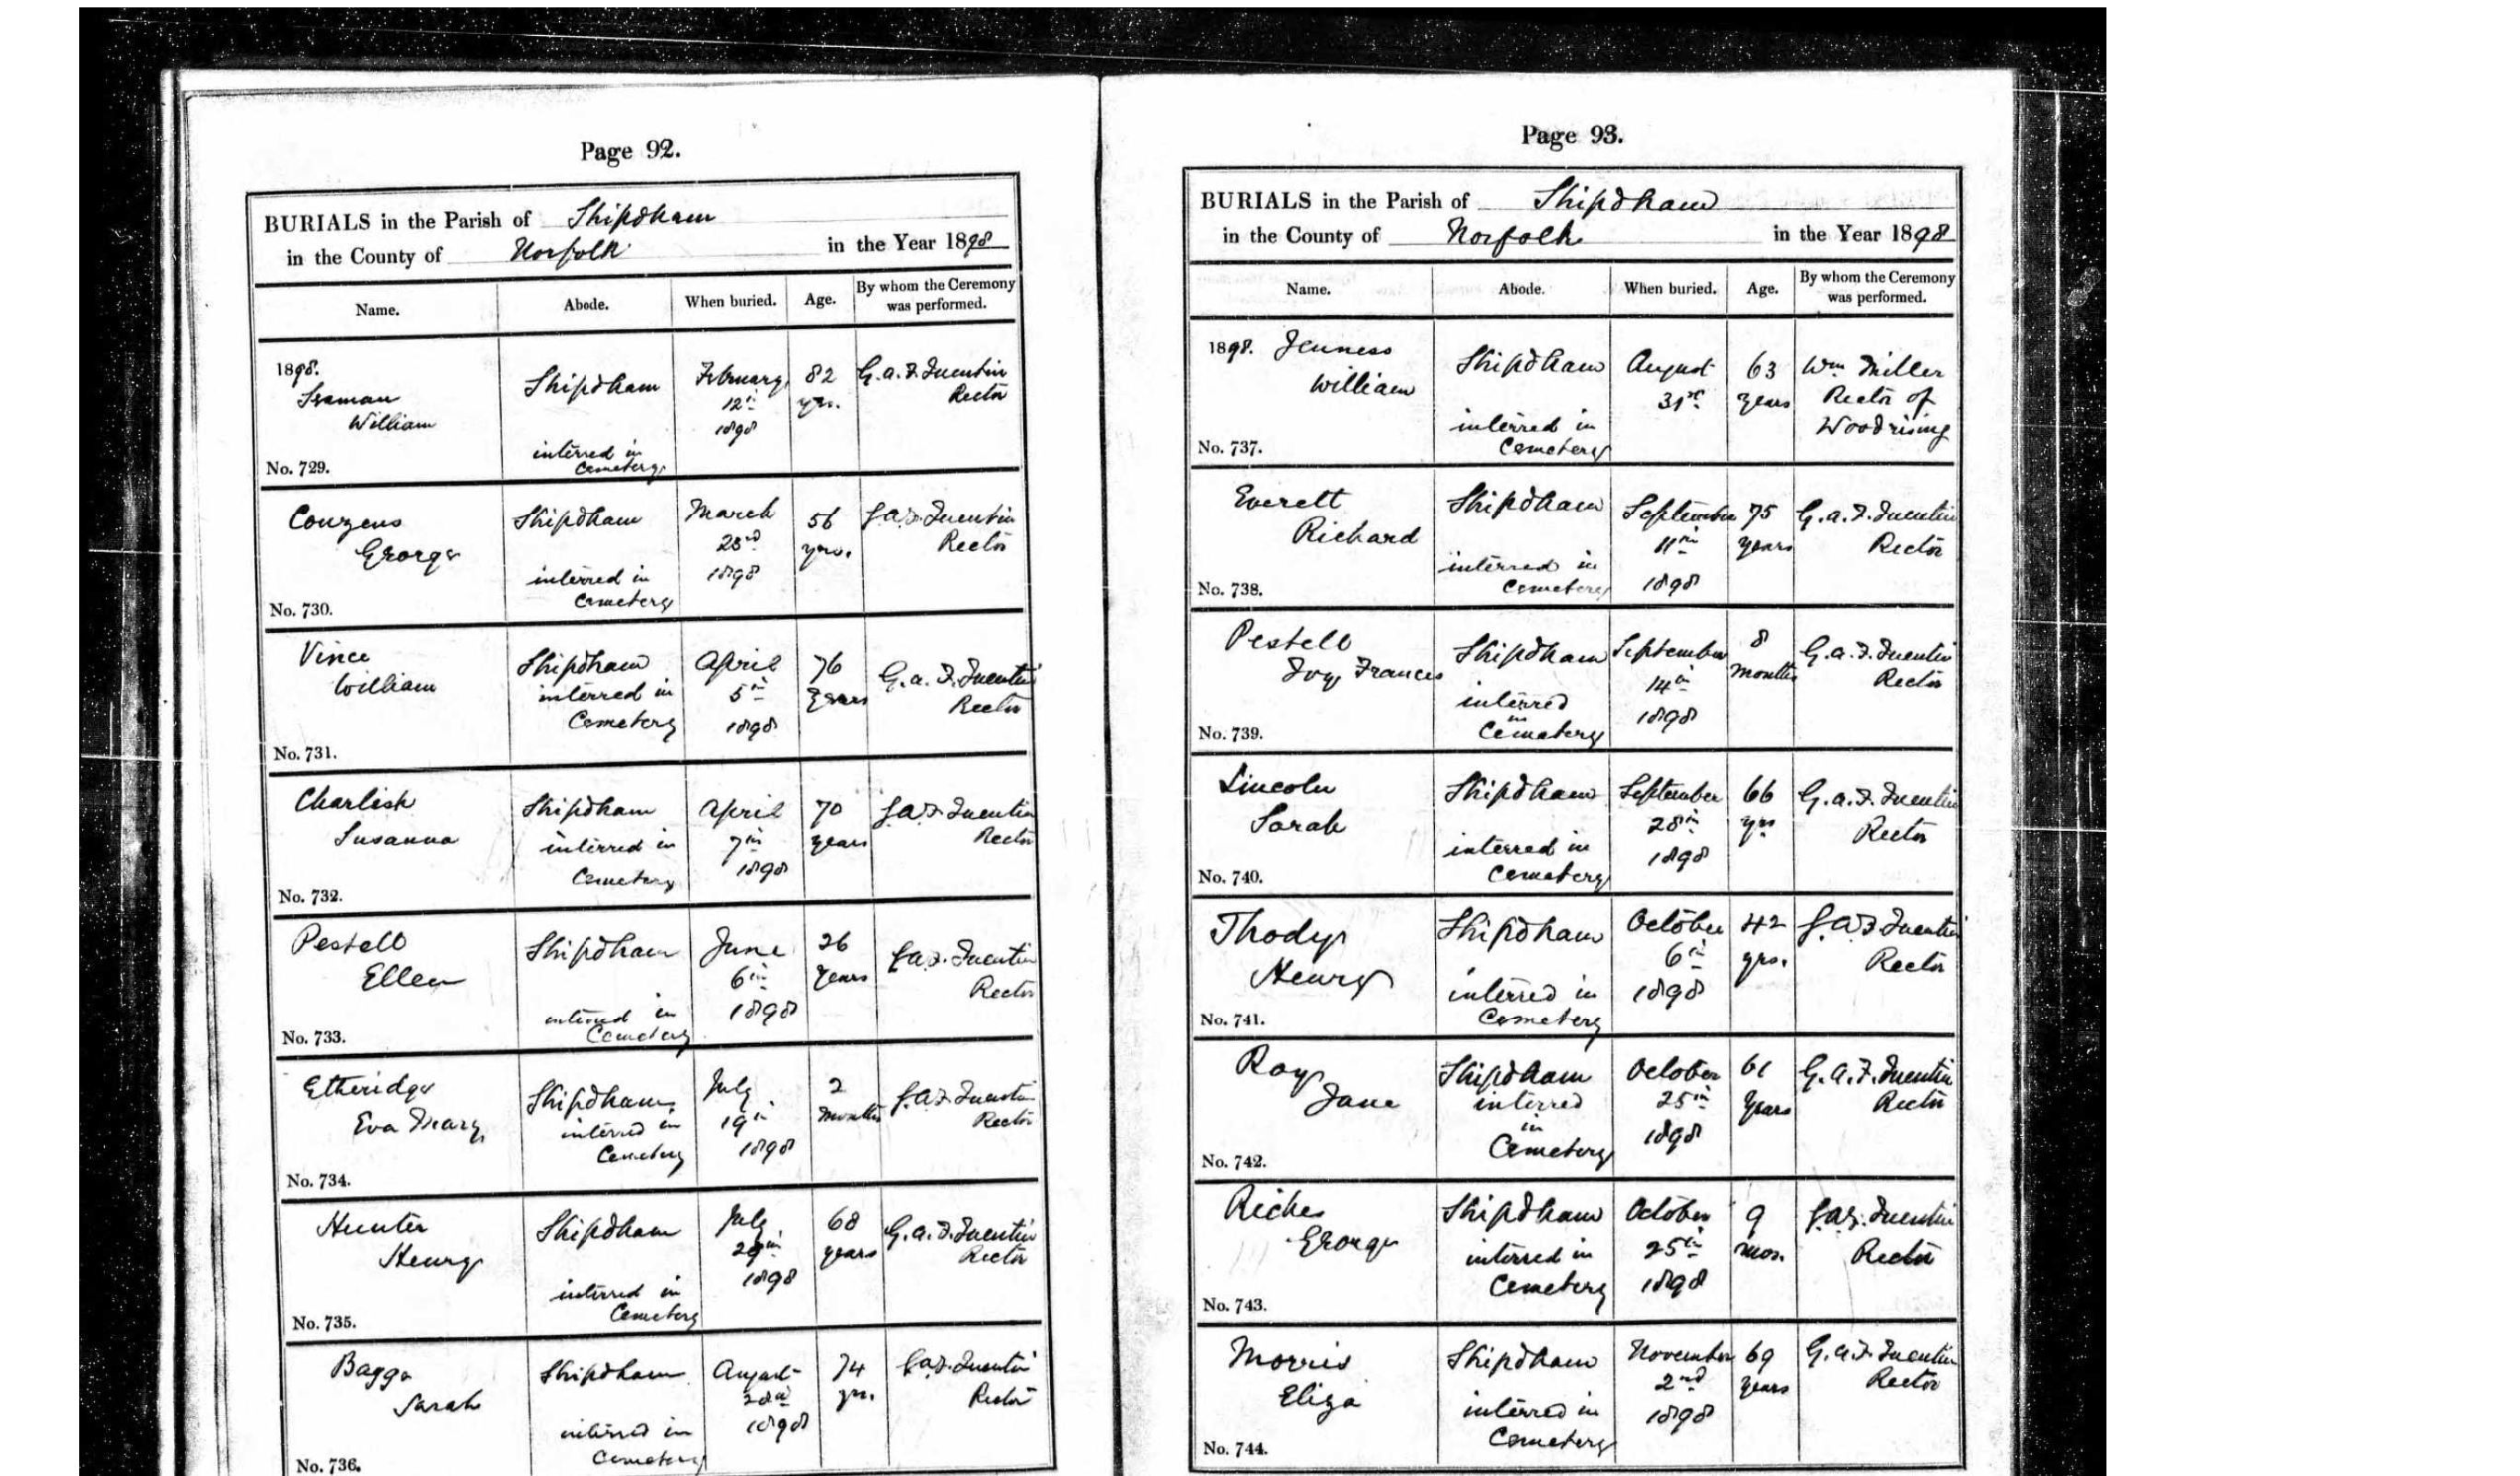 Page 92.
BURIALS in the Parish of Shipdham
in the County of Norfolk in the Year 1898
Name. Abode. When buried. Age. By whom the Ceremony was performed.
1898.
Seaman William
Shipdham
interred in Cemetery
February 12th 1898
82 yrs.
G.A.F. Quentin Rector
No. 729.
Couzens George
Shipdham
interred in Cemetery
March 1898
56 yrs.
G.A.F. Quentin Rector
No. 730.
Vince William
Shipdham
interred in Cemetery
April 5th 1898
76 Years
G.A.F. Quentin Rector
No. 731.
Charlish Susanna
Shipdham
interred in Cemetery
April 7th 1898
70 years
G.A.F. Quentin Rector
No. 732.
Pestell Ellen
Shipdham
interred in Cemetery
June 6th 1898
26 Years
G.A.F. Quentin Rector
No. 733.
Etheridge Eva Mary
Shipdham
interred in Cemetery
July 19th 1898
2 Months
G.A.F. Quentin Rector
No. 734.
Hunter Henry
Shipdham
interred in Cemetery
July 1898
68 years
G.A.F. Quentin Rector
No. 735.
Bagge Sarah
Shipdham
interred in Cemetery
August 1898
74 yrs.
G.A.F. Quentin Rector
No. 736.
Page 93.
BURIALS in the Parish of Shipdham
in the County of Norfolk in the Year 1898
Name. Abode. When buried. Age. By whom the Ceremony was performed.
1898. Jenness William
Shipdham
interred in Cemetery
August 31st
63 Years
Wm Miller Rector of Woodrising
No. 737.
Everett Richard
Shipdham
interred in Cemetery
September 11th 1898
75 Years
G.A.F. Quentin Rector
No. 738.
Pestell Ivy Frances
Shipdham
interred in Cemetery
September 14th 1898
8 Months
G.A.F. Quentin Rector
No. 739.
Lincoln Sarah
Shipdham
interred in Cemetery
September 28th 1898
66 yrs
G.A.F. Quentin Rector
No. 740.
Thody Henry
Shipdham
interred in Cemetery
October 6th 1898
42 yrs.
G.A.F. Quentin Rector
No. 741.
Ray Jane
Shipdham
interred in Cemetery
October 25th 1898
61 Years
G.A.F. Quentin Rector
No. 742.
Riches George
Shipdham
interred in Cemetery
October 25th 1898
9 mos.
G.A.F. Quentin Rector
No. 743.
Morris Eliza
Shipdham
interred in Cemetery
November 2nd 1898
69 Years
G.A.F. Quentin Rector
No. 744.